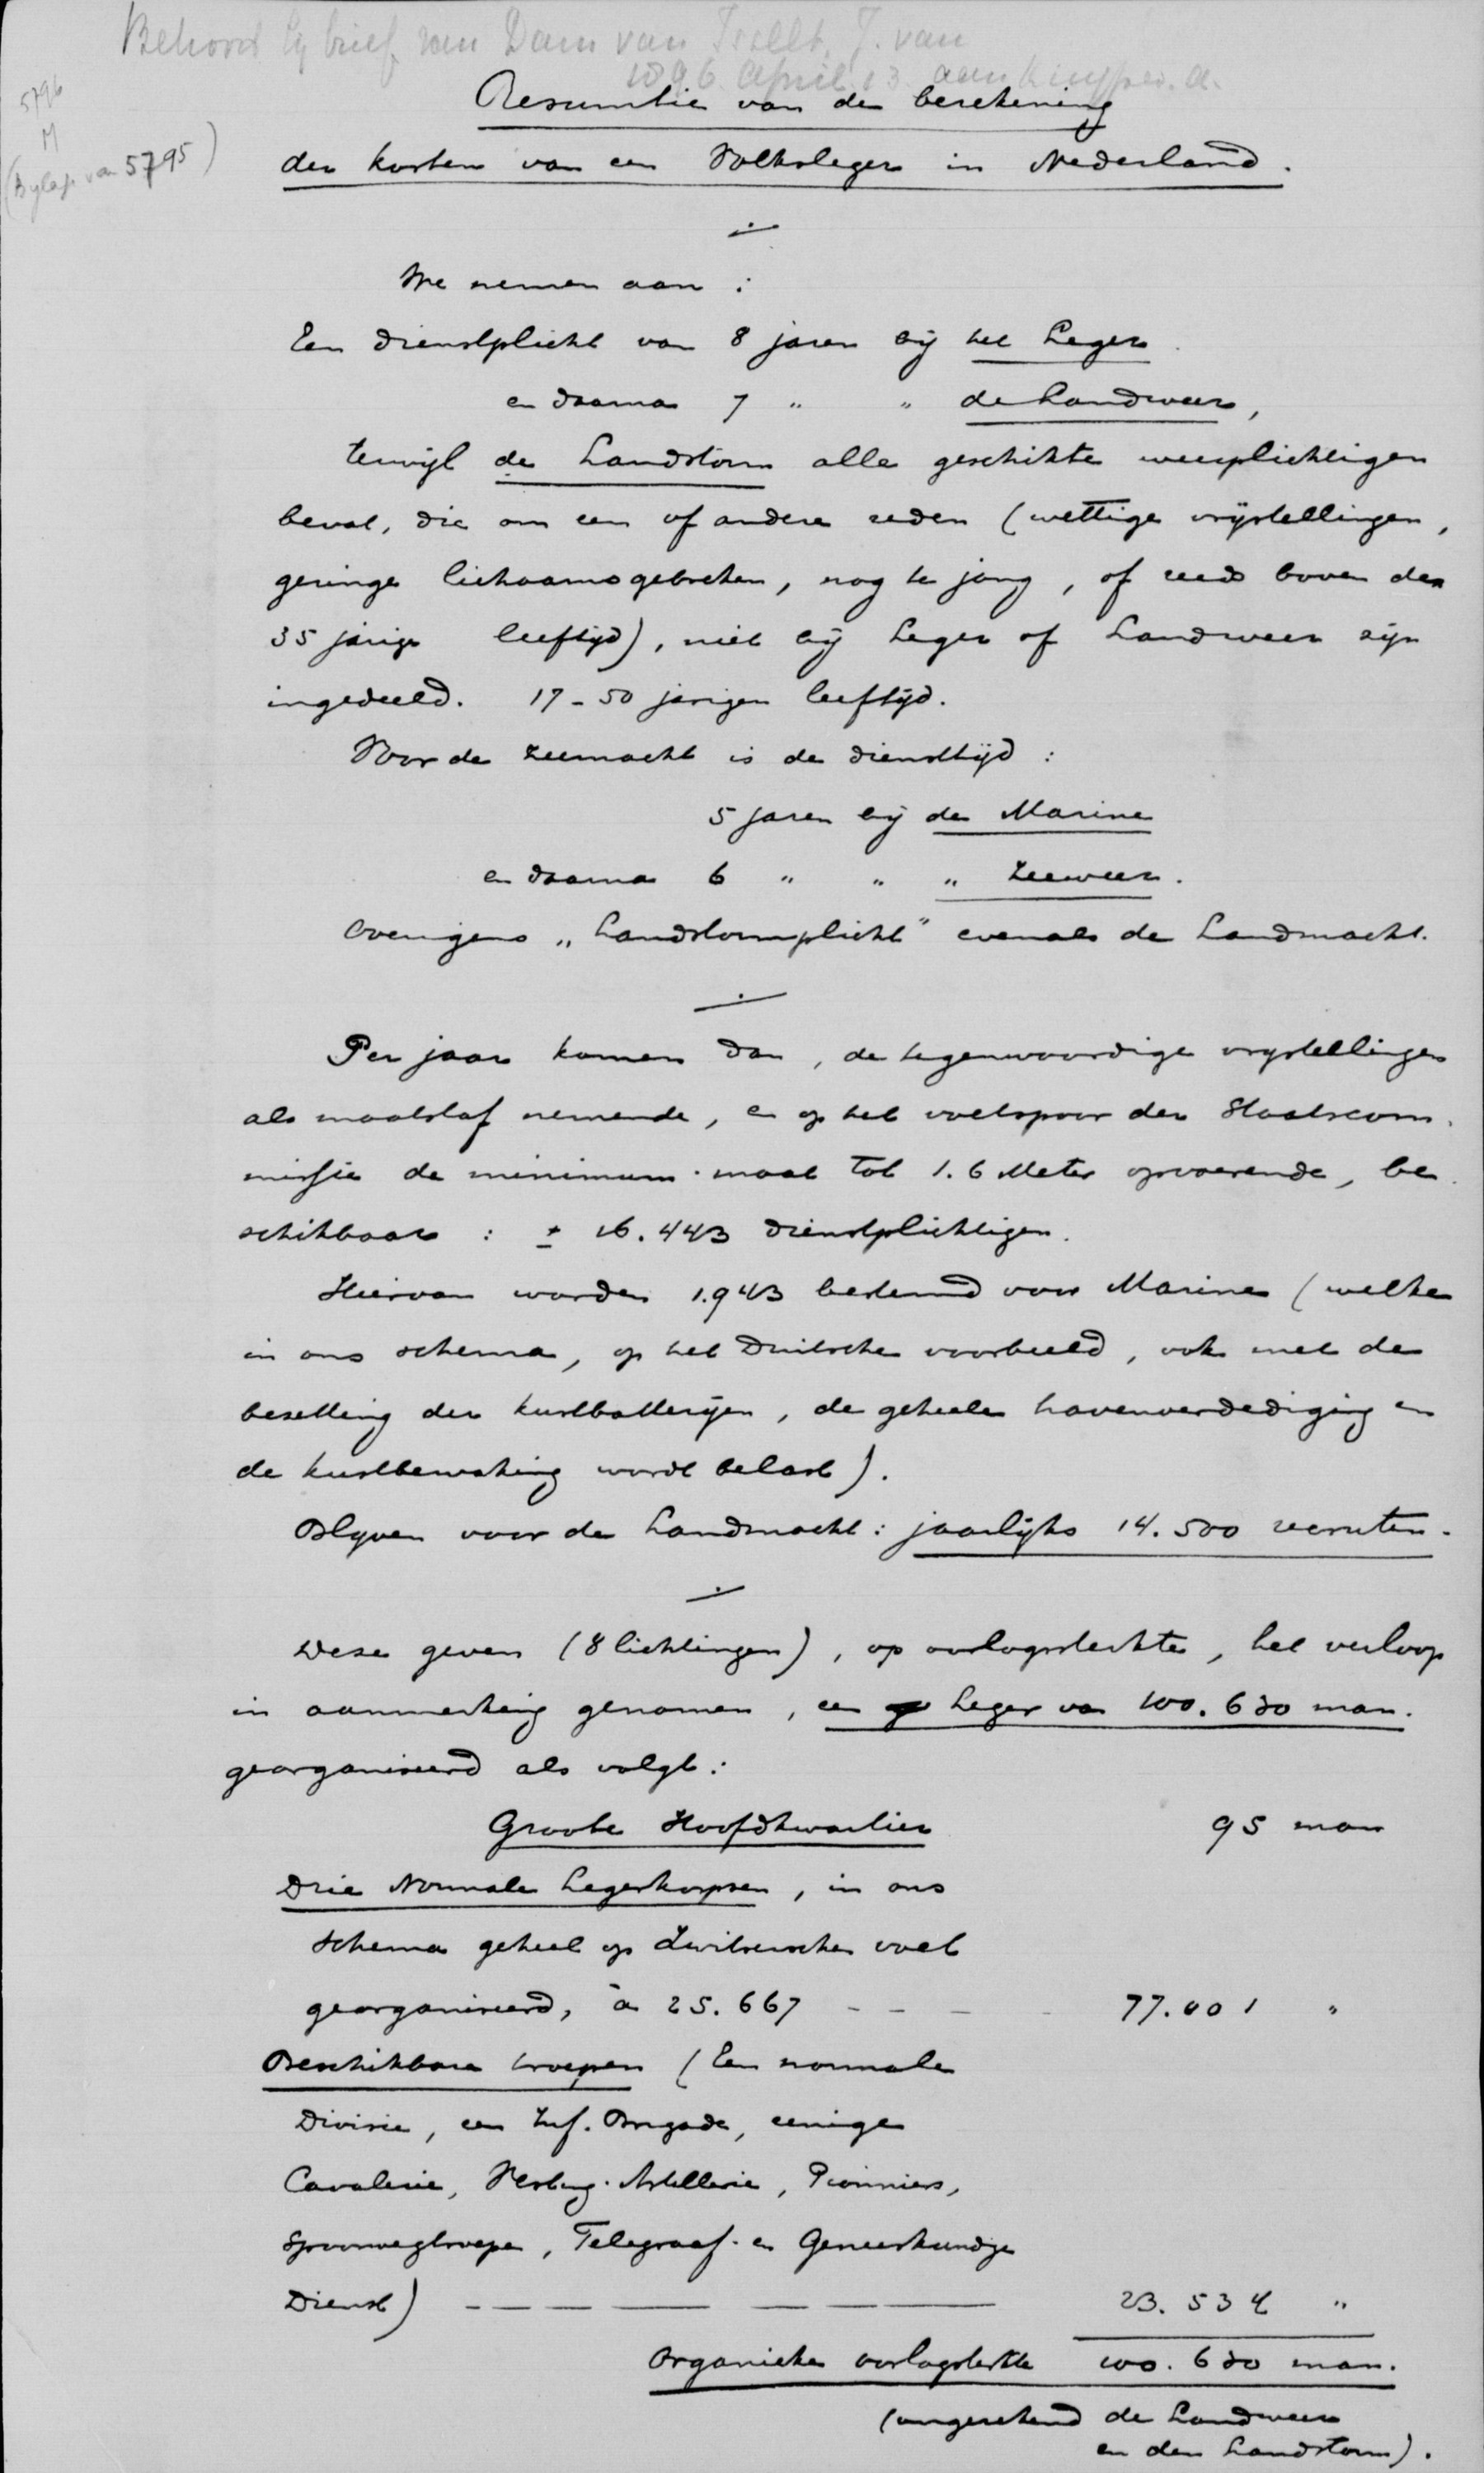 Behoort bij brief van Dam van Isselt, J. van
1896 April 13 aan Kuyper, A.
5796
M
(Bylage van 5795)
Resumtie van de berekening
der kosten van een Volksleger in Nederland.
We nemen aan :
Een dienstplicht van 8 jaren bij het Leger
en daarna 7 " " de Landweer,
terwijl de Landstorm alle geschikte weerplichtigen
bevat, die om een of andere reden (wettige vrijstellingen,
geringe lichaamsgebreken, nog te jong, of reeds boven den
35 jarige leeftijd), niet bij Leger of Landweer zijn
ingedeeld. 17-50 jarigen leeftijd.
Voor de Zeemacht is de diensttijd :
5 jaren bij de Marine
en daarna 6 " " " Zeeweer.
Overigens „Landstormplicht" evenals de Landmacht.
Per jaar komen dan, de tegenwoordige vrystellingen
als maatstaf nemende, en op het voetspoor der Staatscom-
missie de minimum-maat tot 1.6 Meter opvoerende, be-
schikbaar : ± 16.443 dienstplichtigen.
Hiervan worden 1.943 bestemd voor Marine (welke
in ons schema, op het Duitsche voorbeeld, ook met de
bezetting der kustbatterijen, de geheele havenverdediging en
de kustbewaking wordt belast).
Blyven voor de Landmacht : jaarlijks 14.500 recruten.
Deze geven (8 lichtingen), op oorlogssterkte, het verloop
in aanmerking genomen, een Leger van 100.630 man.
georganiseerd als volgt :
Groote Hoofdkwartier 95 man
Drie Normale Legerkorpsen, in ons
schema geheel op Zwitserschen voet
georganiseerd, à 25.667 - - - - 77.001 "
Beschikbare troepen (Een normale
Divisie, een Inf. Brigade, eenige
Cavalerie, Vesting-Artillerie, Pionniers,
Spoorwegtroepen, Telegraaf- en Geneeskundige
Dienst) — — — — — — — 23.534 "
Organieke oorlogssterkte 100.630 man.
(ongerekend de Landweer
en den Landstorm).